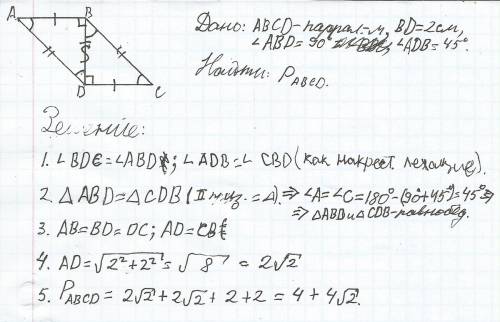 A B
D C
Дано: ABCD - паррал-м, BD=2см,
∠ABD=90°, ∠ADB=45°.
Найти: P ABCD.
Решение:
1. ∠BDC=∠ABD; ∠ADB=∠CBD (как накрест лежащие).
2. △ABD=△CDB (II приз. = △). ⇒ ∠A=∠C=180°-(90°+45°)=45° ⇒
⇒ △ABD и △CDB - равнобед.
3. AB=BD=DC; AD=CB
4. AD=√2²+2² = √8 = 2√2
5. P ABCD = 2√2+2√2+2+2 = 4+4√2.